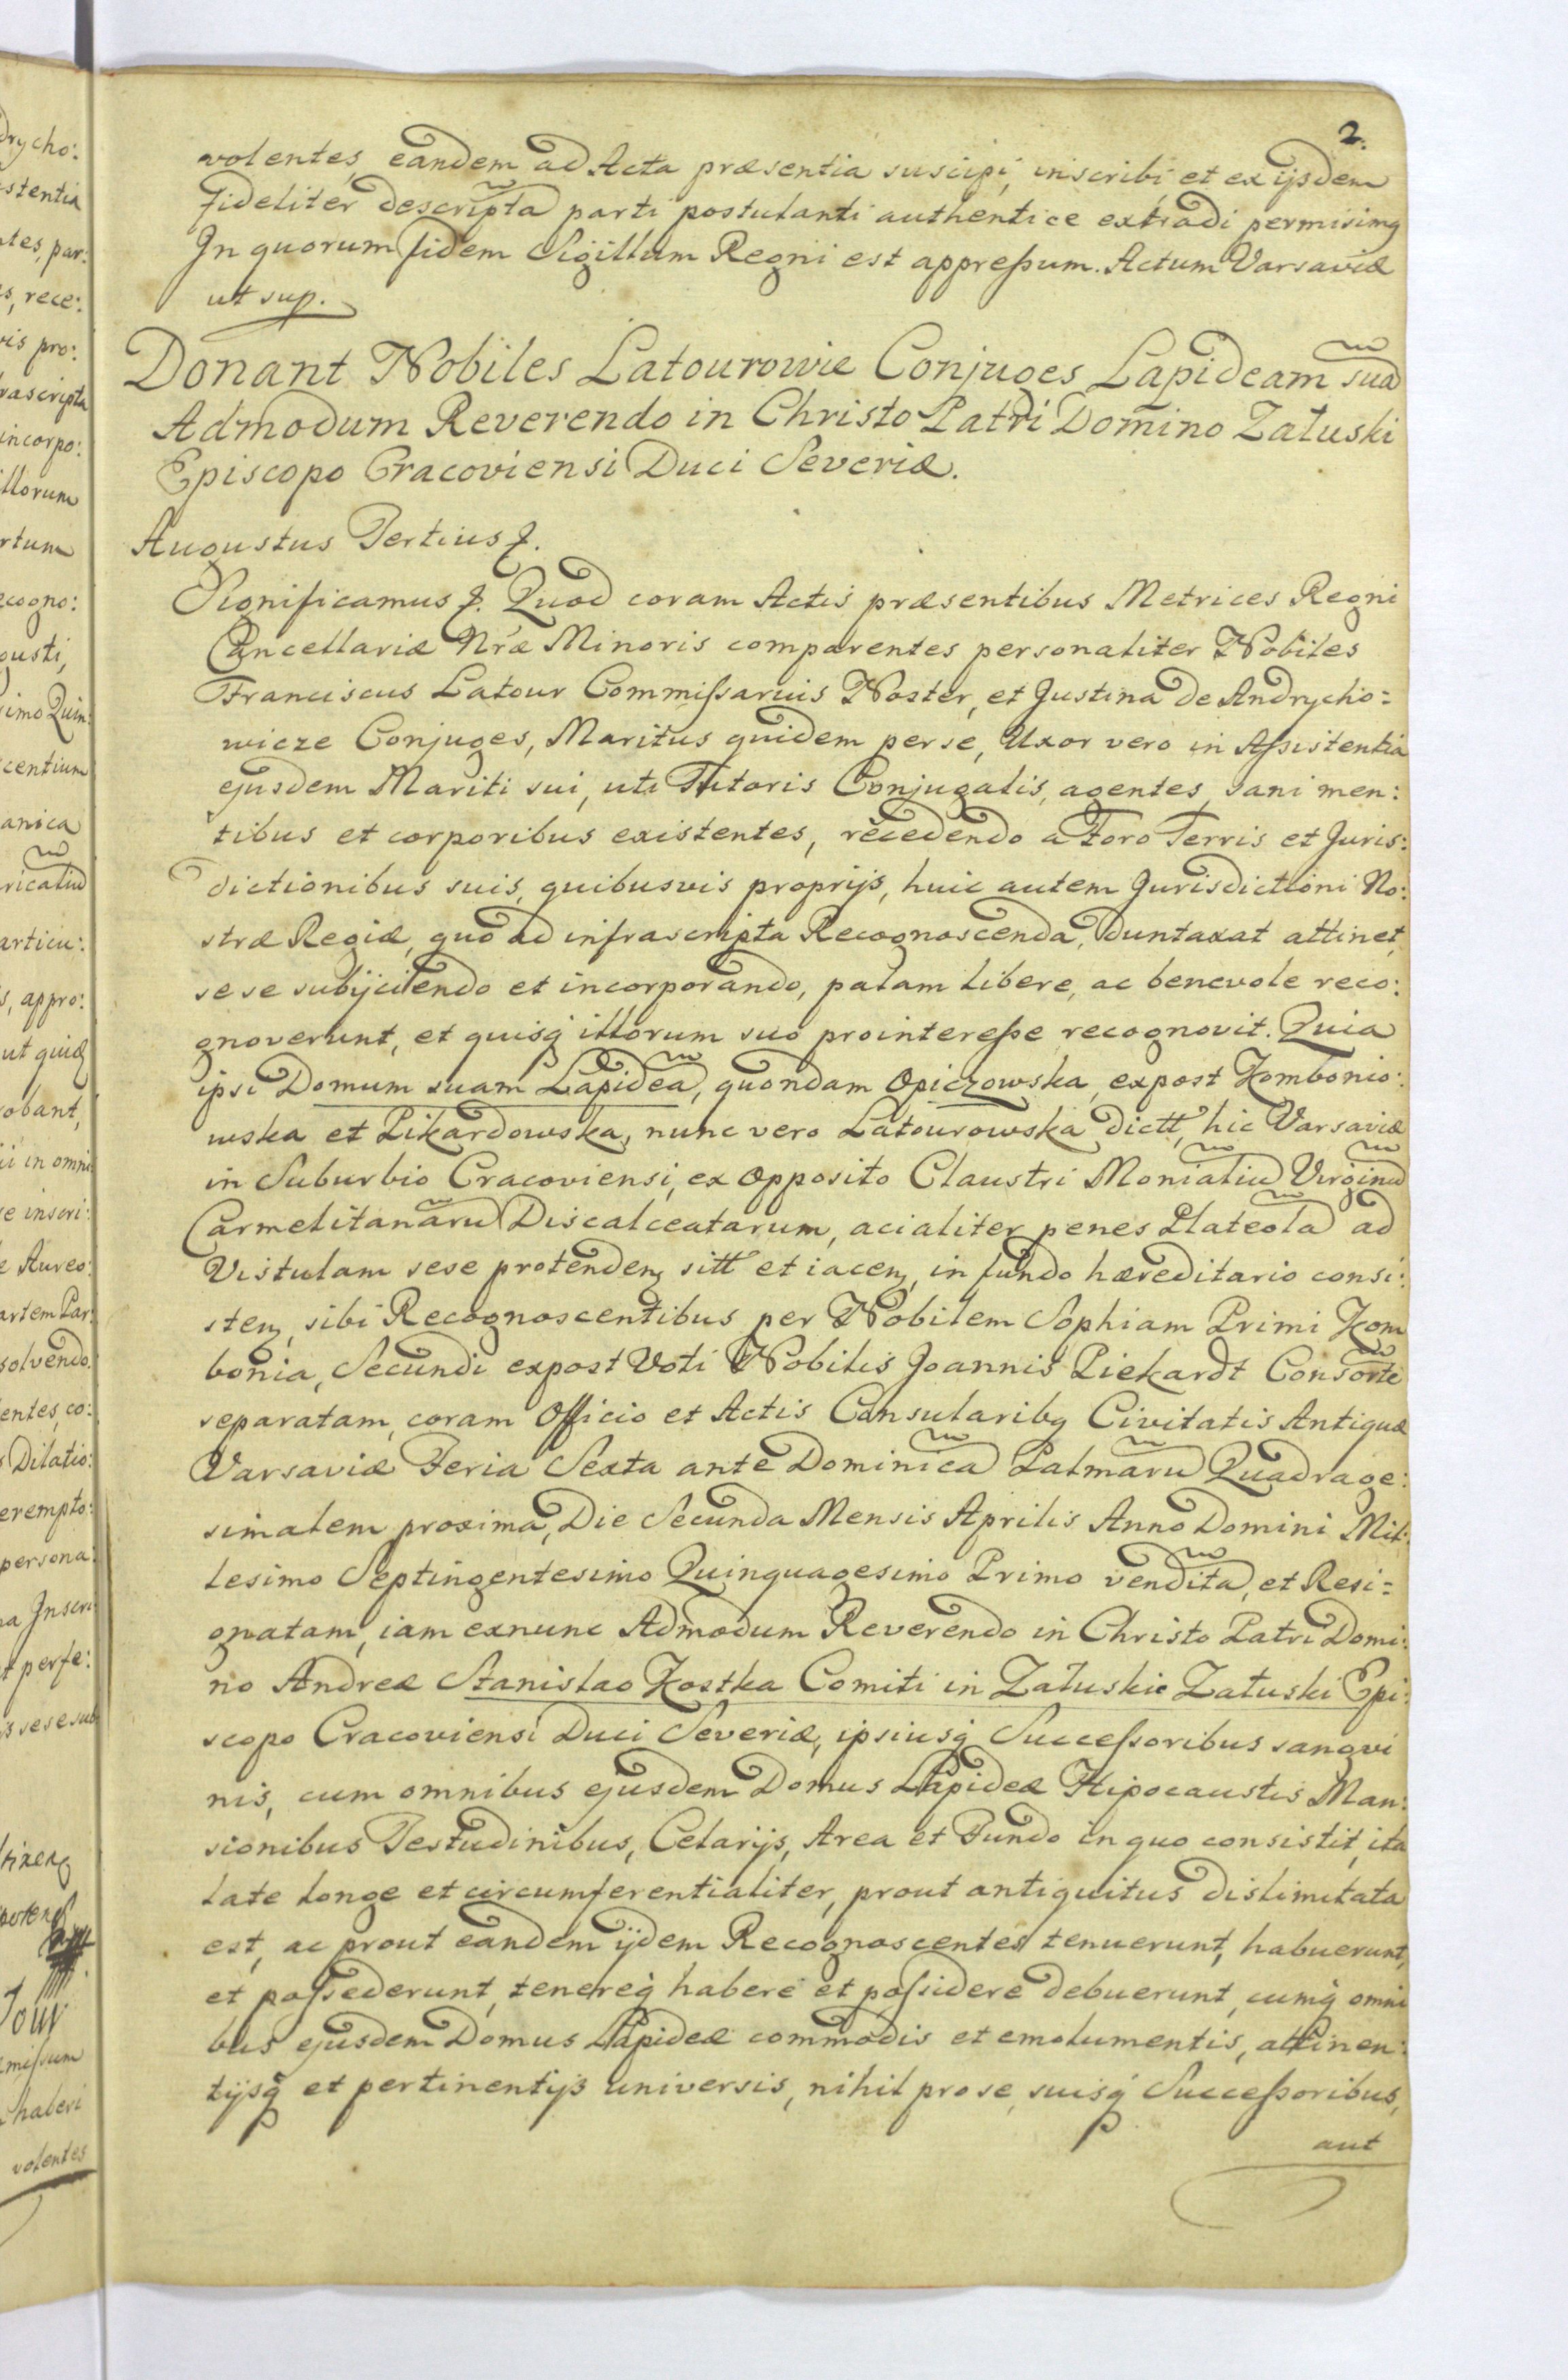 2.
volentes, eandem ad Acta præsentia suscipi, inscribi et ex ijsdem
fideliter descripta parti postulanti authentice extradi permisimq
In quorum fidem Sigillum Regni est appreſsum. Actum Varsaviæ
ut sup.
Donant Nobiles Latourowie Conjuges Lapideam suã
Admodum Reverendo in Christo Patri Domino Załuski
Episcopo Cracoviensi Duci Severiæ.
Augustus Tertius &.
Significamus &. Quod coram Actis præsentibus Metrices Regni
Cancellariæ Nræ Minoris comparentes personaliter Nobiles
Franciscus Latour Commiſsarius Noster, et Justina de Andrycho=
wicze Conjuges, Maritus quidem per se, Uxor vero in Aſsistentia
ejusdem Mariti sui, uti Tutoris Conjugalis, agentes, sani men:
tibus et corporibus existentes, recedendo a Foro Terris et Juris:
dictionibus suis, quibusvis proprijs, huic autem Jurisdictioni No:
stræ Regiæ, quo ad infrascripta Recognoscenda, duntaxat attinet,
sese subijciendo et incorporando, palam libere, ac benevole reco:
gnoverunt, et quisq́ illorum suo prointereſse recognovit. Quia
ipsi Domum suam Lapideã, quondam Opiczowska, expost Kombonio:
wska et Pikardowska, nunc vero Latourowska dictt, hic Varsaviæ
in Suburbio Cracoviensi, ex Opposito Claustri Monialiũ Virginũ
Carmelitanarũ Discalceatarum, acialiter penes Plateolã ad
Vistulam sese protendenq sitt et iacenq, in fundo hæreditario consi:
stenq, sibi Recognoscentibus per Nobilem Sophiam Primi Kom
bonia, Secundi expost Voti Nobilis Joannis Piekardt Consorte
separatam, coram Officio et Actis Consularibq Civitatis Antiquæ
Varsaviæ Feria Sexta ante Dominicã Palmarũ Quadrage:
simalem proxima, Die Secunda Mensis Aprilis Anno Domini Mil:
lesimo Septingentesimo Quinquagesimo Primo venditã, et Resi=
gnatam, iam exnunc Admodum Reverendo in Christo Patri Domi:
no Andreæ Stanislao Kostka Comiti in Załuskie Załuski Epi:
scopo Cracoviensi Duci Severiæ, ipsiusq́ Succeſsoribus sangvi
nis, cum omnibus ejusdem Domus Lapideæ Hipocaustis Man:
sionibus Testudinibus, Celarijs, Area et Fundo in quo consistit, ita
late longe et circumferentialiter, prout antiquitus dislimitata
est, ac prout eandem ijdem Recognoscentes tenuerunt, habuerunt,
et poſsederunt, tenereq́ habere et poſsidere debuerunt, cumq́ omni
bus ejusdem Domus Lapideæ commodis et emolumentis, attinen:
tijsq́ et pertinentijs universis, nihil pro se, suisq́ Succeſsoribus,
aut